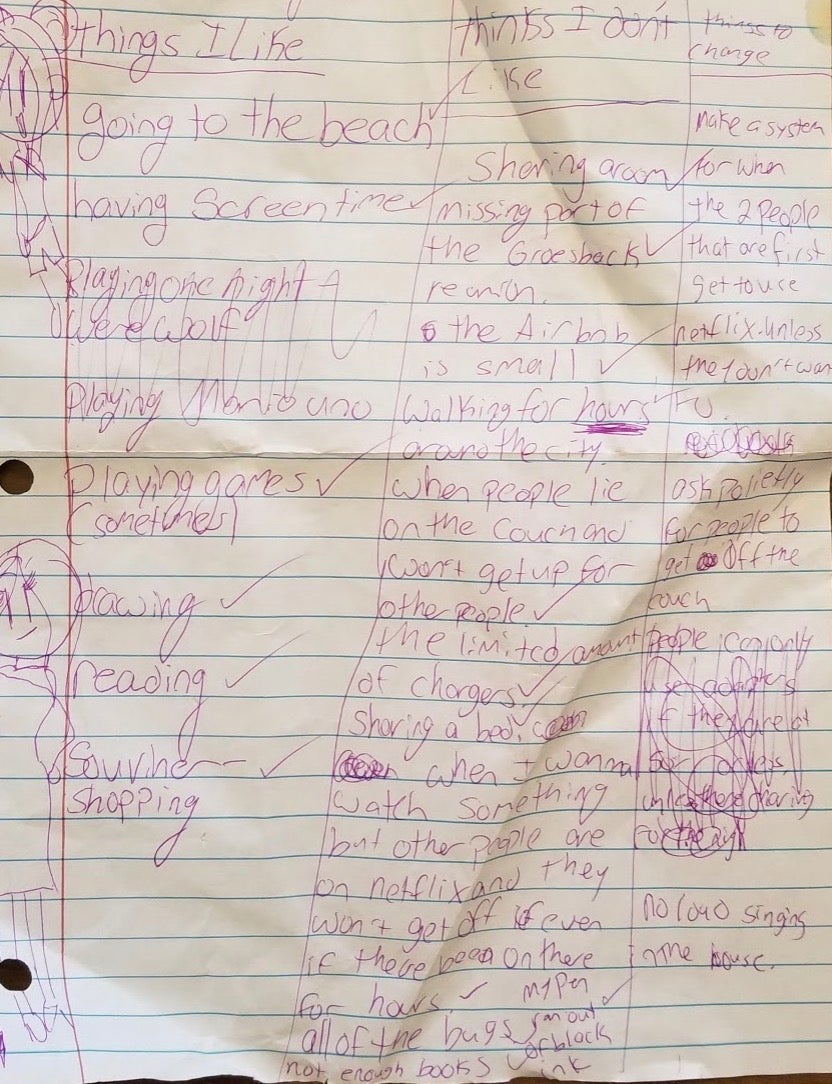 things I like
going to the beach
having Screentime
Playing one night
werewolf
Playing Mario uno
Playing games
(sometimes)
drawing
reading
Souvine--
shopping
thinks I don't
Like
Sharing a room
missing part of
the Groesback
reunion.
the Airbnb
is small
Walking for hours
around the city.
when people lie
on the couch and
won't get up for
other people.
the limited amant
of chargers
Sharing a bed.
when I wanna
watch something
but other people are
on netflix and they
won't get off even
if there been on there
for hours.
all of the bugs
not enough books
my pen
ran out
of black
ink
things to
change
make a system
for when
the 2 people
that are first
get to use
netflix. unless
they don't wan
TO.
ask polietly
for people to
get off the
couch
people can only
use adapters
if they are at
no loud singing
in the house.